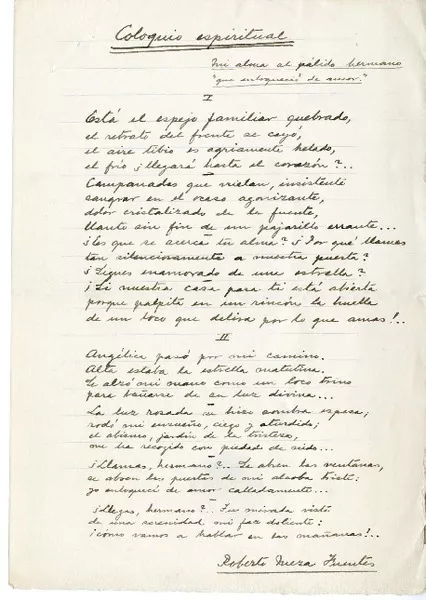 Coloquio espiritual
Mi alma al pálido hermano
"que enloqueció de amor."
I
Está el espejo familiar quebrado,
el retrato del frente se cayó,
el aire tibio es agriamente helado,
el frío ¿llegará hasta el corazón?..
Campanadas que vuelan, insistente
sangrar en el ocaso agonizante,
dolor cristalizado de la fuente,
llanto sin fin de un pajarillo errante...
¿Es que se acerca tu alma? ¿Por qué llamas
tan silenciosamente a nuestra puerta?
¿Sigues enamorado de una estrella?
¡Si nuestra casa para ti está abierta
porque palpita en un rincón la huella
de un loco que delira por lo que amas!..
II
Angélica pasó por mi camino.
Alta estaba la estrella matutina.
Se alzó mi mano como un loco trino
para bañarse de su luz divina...
La luz rosada se hizo sombra espesa;
rodó mi ensueño, ciego y aturdido;
el abismo, jardín de la tristeza,
me ha recogido con piedad de nido...
¿Llamas, hermano?.. Se abren las ventanas,
se abren las puertas de mi alcoba triste:
yo enloquecí de amor calladamente...
¿Llegas, hermano?.. Tu mirada viste
de una serenidad mi faz doliente:
¡cómo vamos a hablar en las mañanas!..
Roberto Meza Fuentes